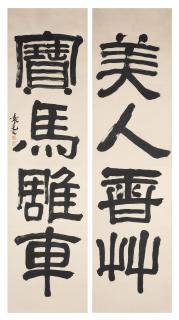 美人香艸
寶馬雕車